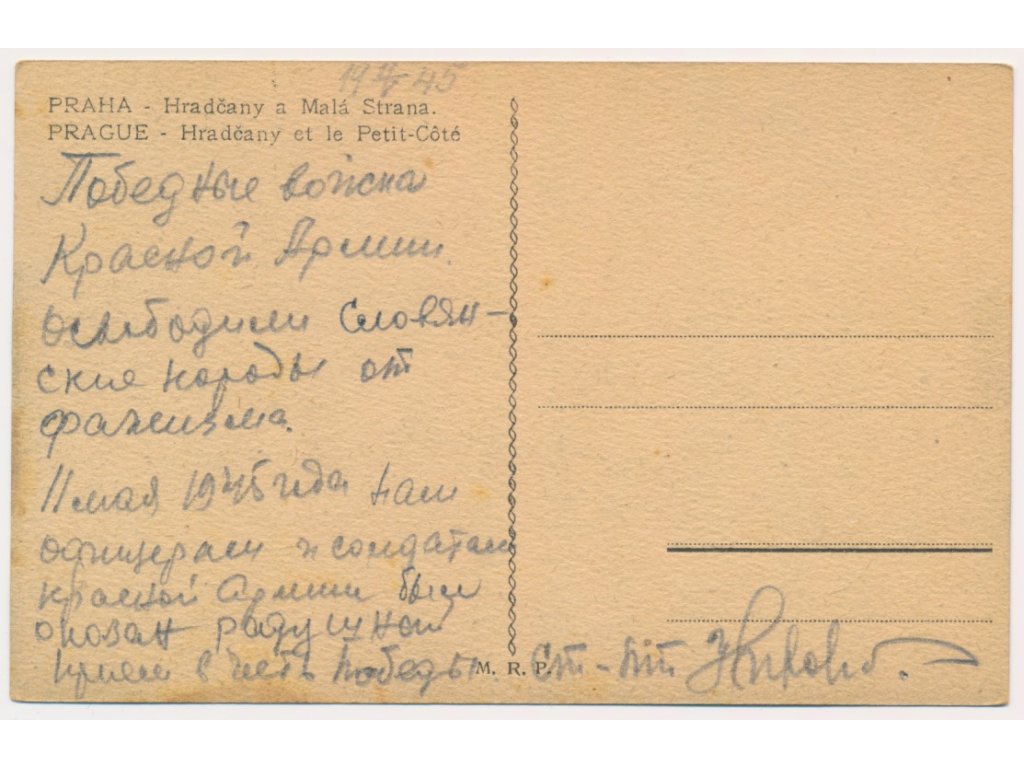 45
PRAHA - Hradčany a Malá Strana.
PRAGUE - Hradčany et le Petit-Côté
Победные войска
Красной Армии.
освободили Словян-
ские народы от
фашизма.
11 мая 1945 года нам
офицерам и солдатам
красной Армии был
оказан радушной
прием в честь победы
M. R. P.
Ст-Лт